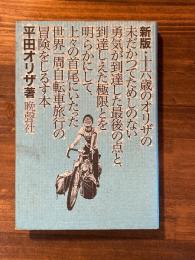 新版 十六歳のオリザの
未だかつてためしのない
勇気が到達した最後の点と、
到達しえた極限とを
明らかにして、
上々の首尾にいたった
世界一周自転車旅行の
冒険をしるす本
平田オリザ著 晩聲社